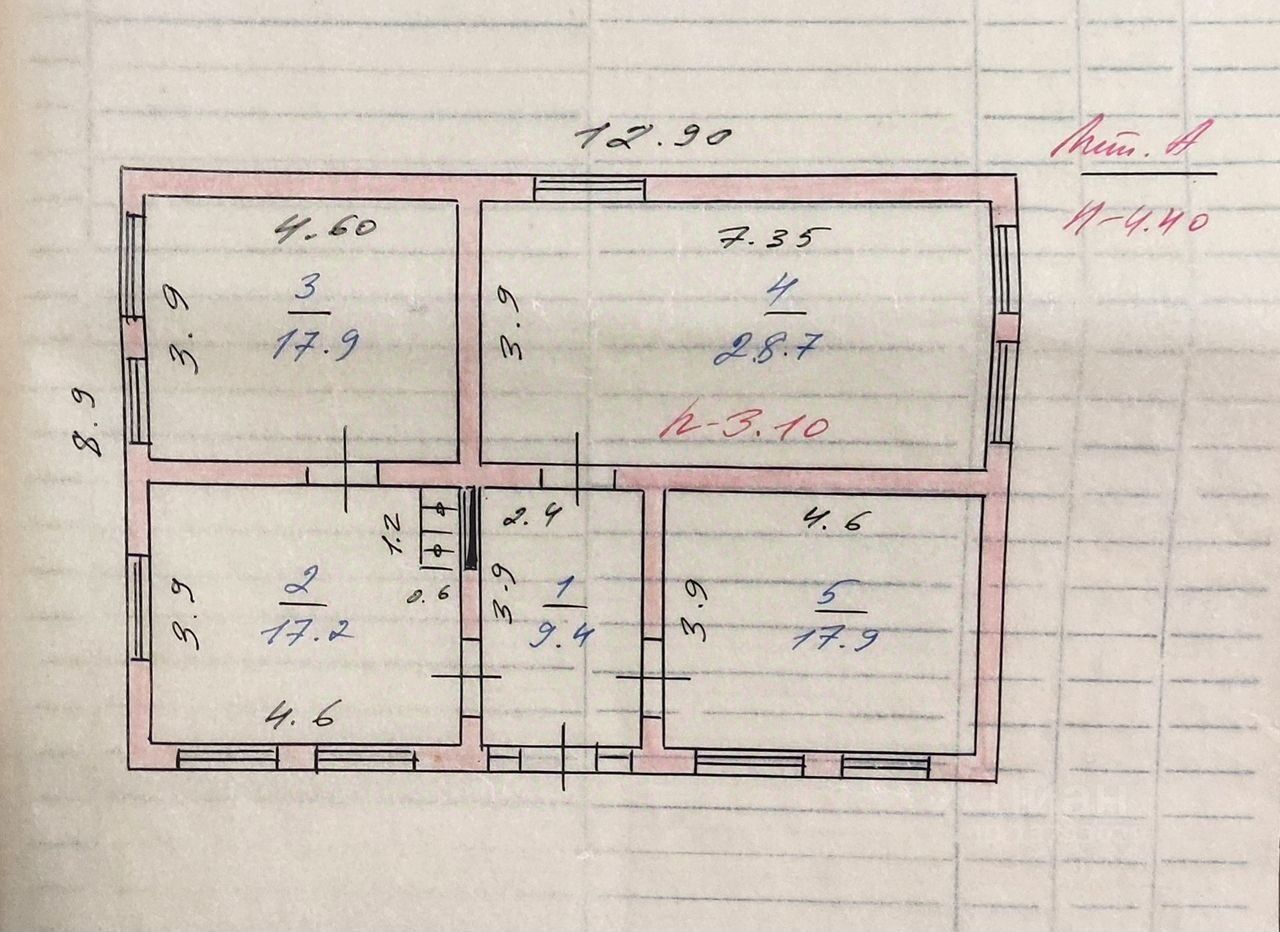 12.90
Лит. А
Н-4.40
4.60
3
17.9
3.9
7.35
4
28.7
3.9
h-3.10
8.9
1.2
0.6
2
17.2
3.9
4.6
2.4
3.9
1
9.4
4.6
3.9
5
17.9